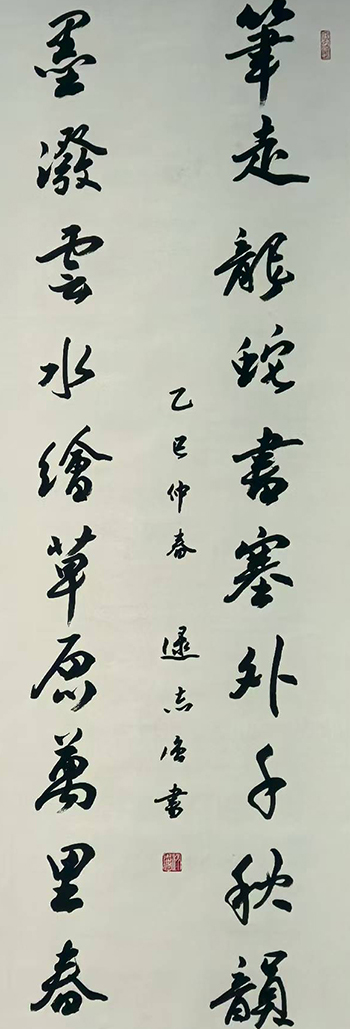 筆走龍蛇書塞外千秋韻
墨潑雲水繪草原萬里春
乙巳仲春 志 書